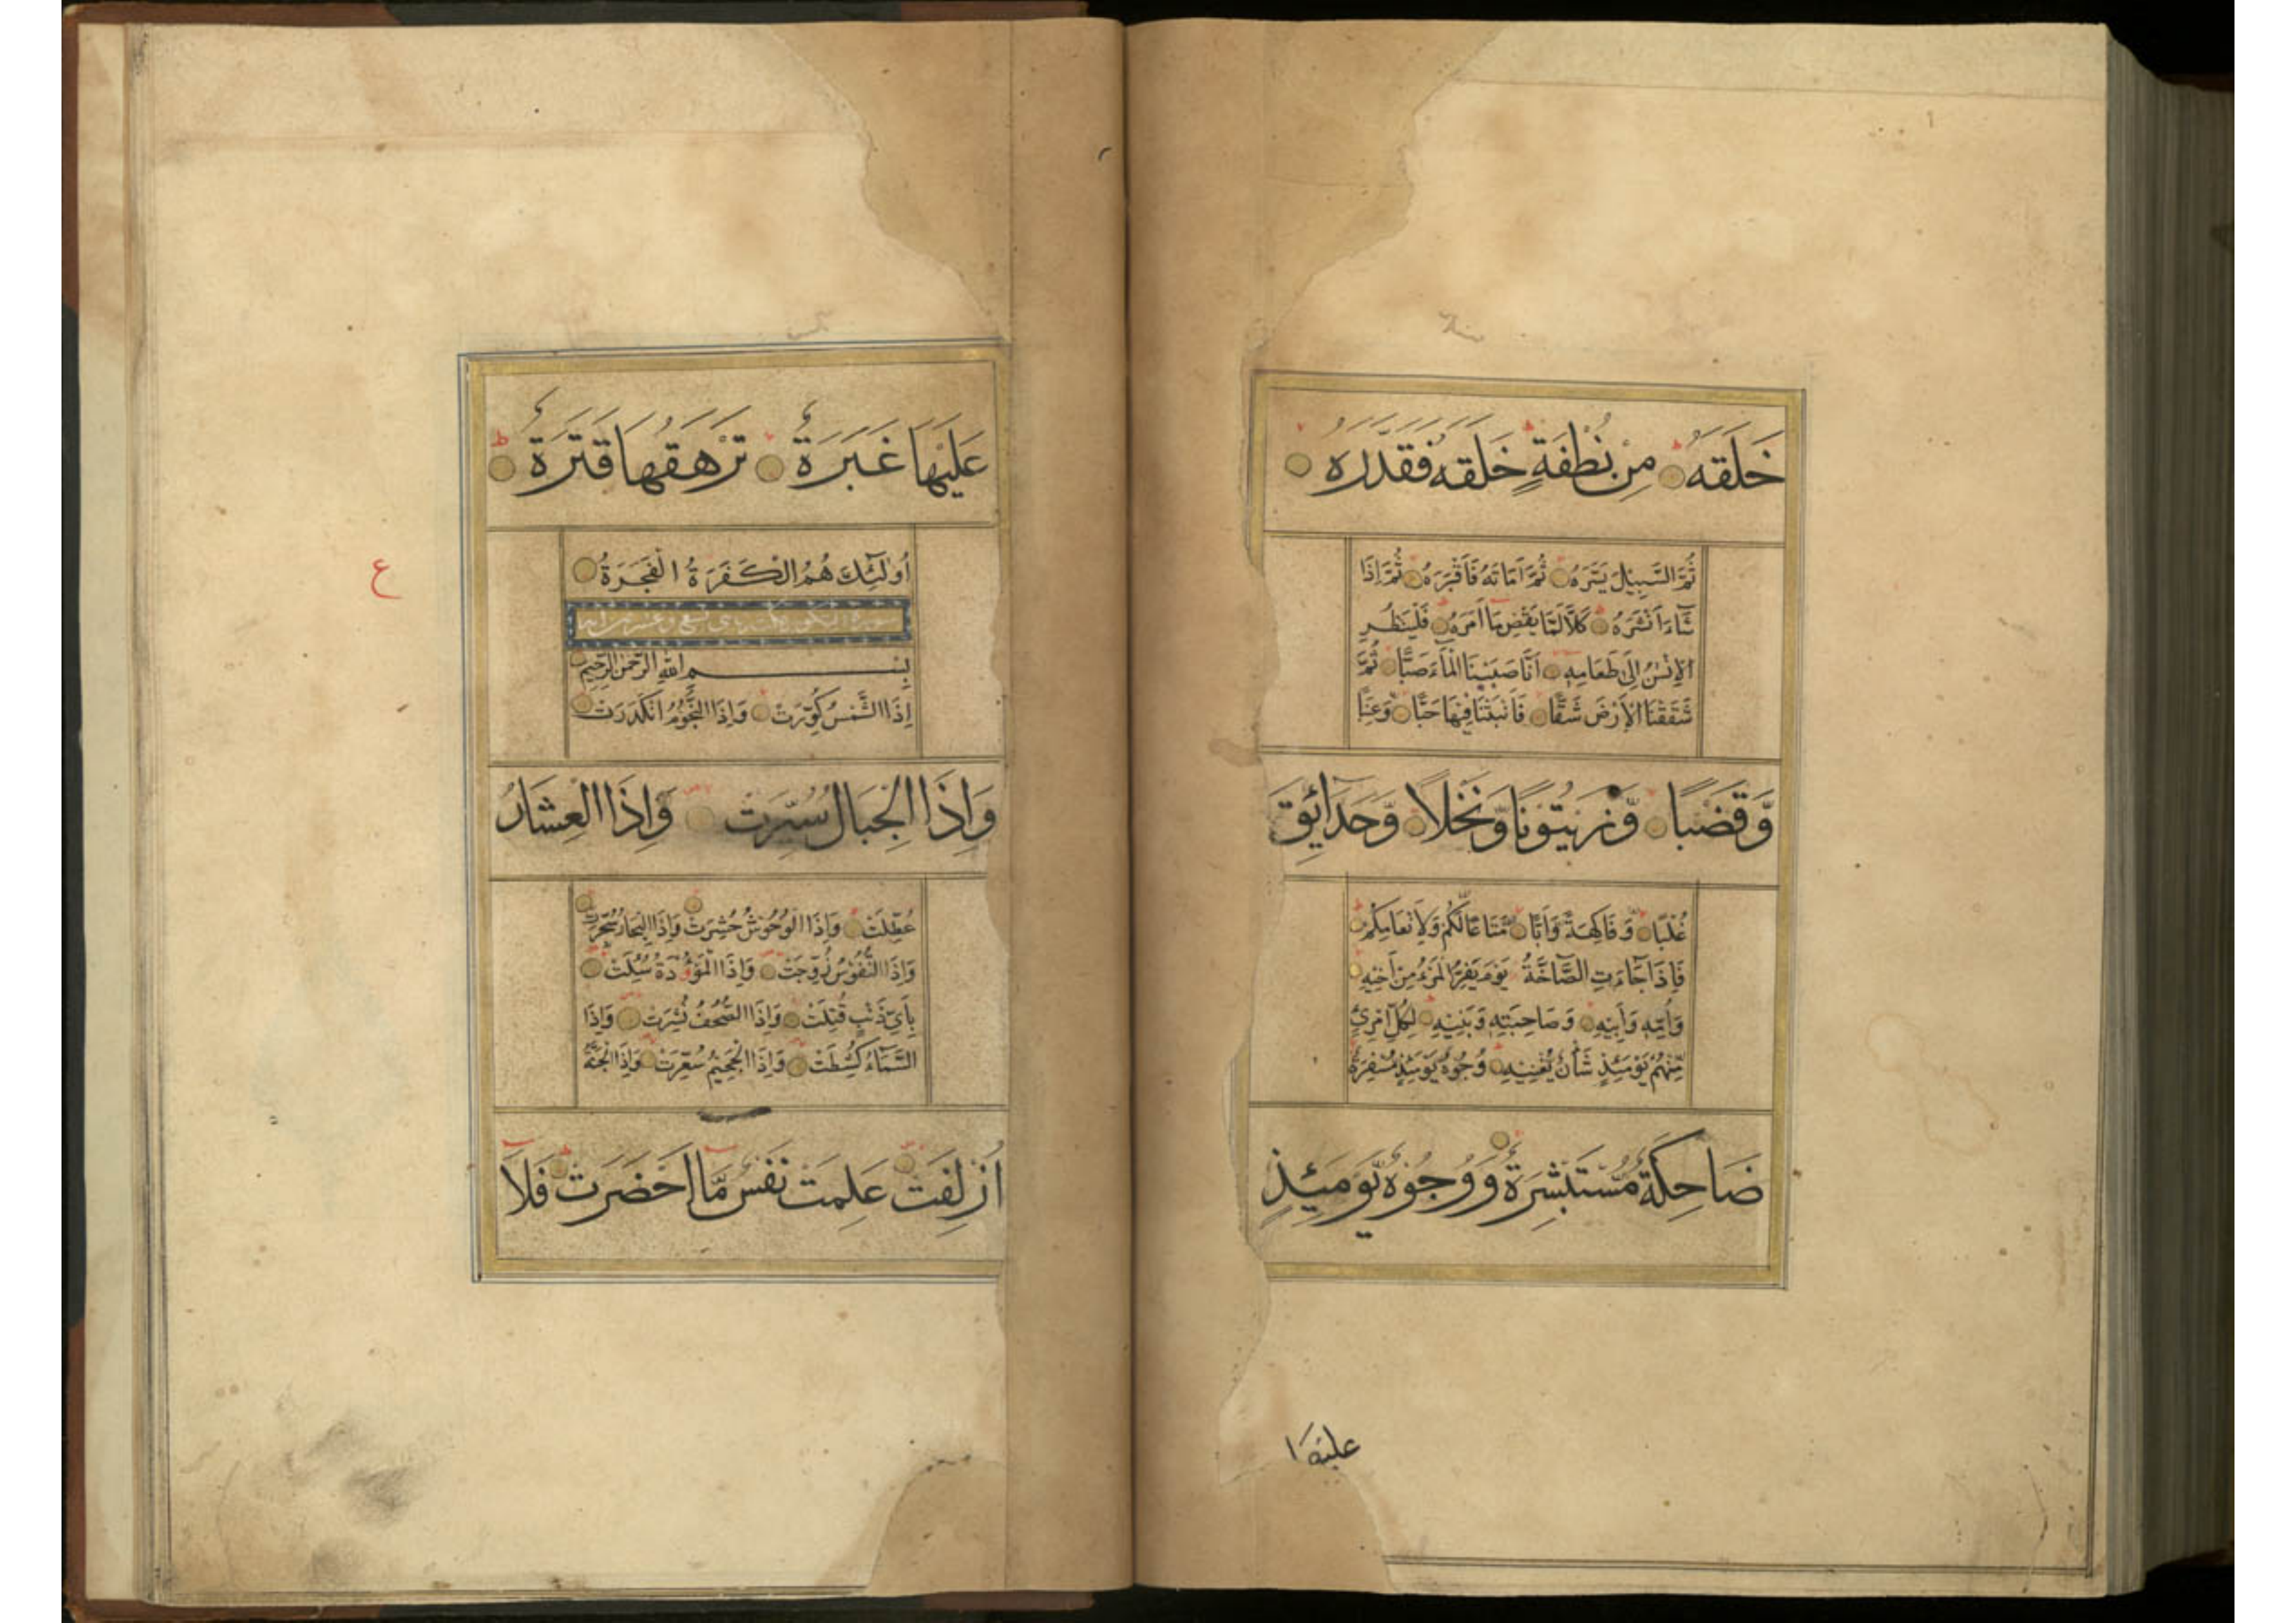 خَلَقَهُ مِنْ نُطْفَةٍ خَلَقَهُ فَقَدَّرَهُ
ثُمَّ السَّبِيلَ يَسَّرَهُ ثُمَّ اَمَاتَهُ فَاَقْبَرَهُ ثُمَّ اِذَا
شَآءَ اَنْشَرَهُ كَلَّا لَمَّا يَقْضِ مَا اَمَرَهُ فَلْيَنْظُرِ
الْاِنْسٰنُ اِلٰى طَعَامِهِ اَنَّا صَبَبْنَا الْمَآءَ صَبًّا ثُمَّ
شَقَقْنَا الْاَرْضَ شَقًّا فَاَنْبَتْنَا فِيْهَا حَبًّا وَّعِنَبًا
وَّقَضْبًا وَّزَيْتُوْنًا وَّنَخْلًا وَّحَدَآئِقَ
غُلْبًا وَّفَاكِهَةً وَاَبًّا مَّتَاعًا لَّكُمْ وَلِاَنْعَامِكُمْ
فَاِذَا جَآءَتِ الصَّآخَّةُ يَوْمَ يَفِرُّ الْمَرْءُ مِنْ اَخِيْهِ
وَاُمِّهِ وَاَبِيْهِ وَصَاحِبَتِهِ وَبَنِيْهِ لِكُلِّ امْرِئٍ
مِّنْهُمْ يَوْمَئِذٍ شَأْنٌ يُّغْنِيْهِ وُجُوْهٌ يَّوْمَئِذٍ مُّسْفِرَةٌ
ضَاحِكَةٌ مُّسْتَبْشِرَةٌ وَوُجُوْهٌ يَّوْمَئِذٍ
عليها
عَلَيْهَا غَبَرَةٌ تَرْهَقُهَا قَتَرَةٌ
اُولٰٓئِكَ هُمُ الْكَفَرَةُ الْفَجَرَةُ
سورة التكوير
بِسْمِ اللهِ الرَّحْمٰنِ الرَّحِيْمِ
اِذَا الشَّمْسُ كُوِّرَتْ وَاِذَا النُّجُوْمُ انْكَدَرَتْ
وَاِذَا الْجِبَالُ سُيِّرَتْ وَاِذَا الْعِشَارُ
عُطِّلَتْ وَاِذَا الْوُحُوْشُ حُشِرَتْ وَاِذَا الْبِحَارُ سُجِّرَتْ
وَاِذَا النُّفُوْسُ زُوِّجَتْ وَاِذَا الْمَوْؤُدَةُ سُئِلَتْ
بِاَيِّ ذَنْبٍ قُتِلَتْ وَاِذَا الصُّحُفُ نُشِرَتْ وَاِذَا
السَّمَآءُ كُشِطَتْ وَاِذَا الْجَحِيْمُ سُعِّرَتْ وَاِذَا الْجَنَّةُ
اُزْلِفَتْ عَلِمَتْ نَفْسٌ مَّا اَحْضَرَتْ فَلَا
ع